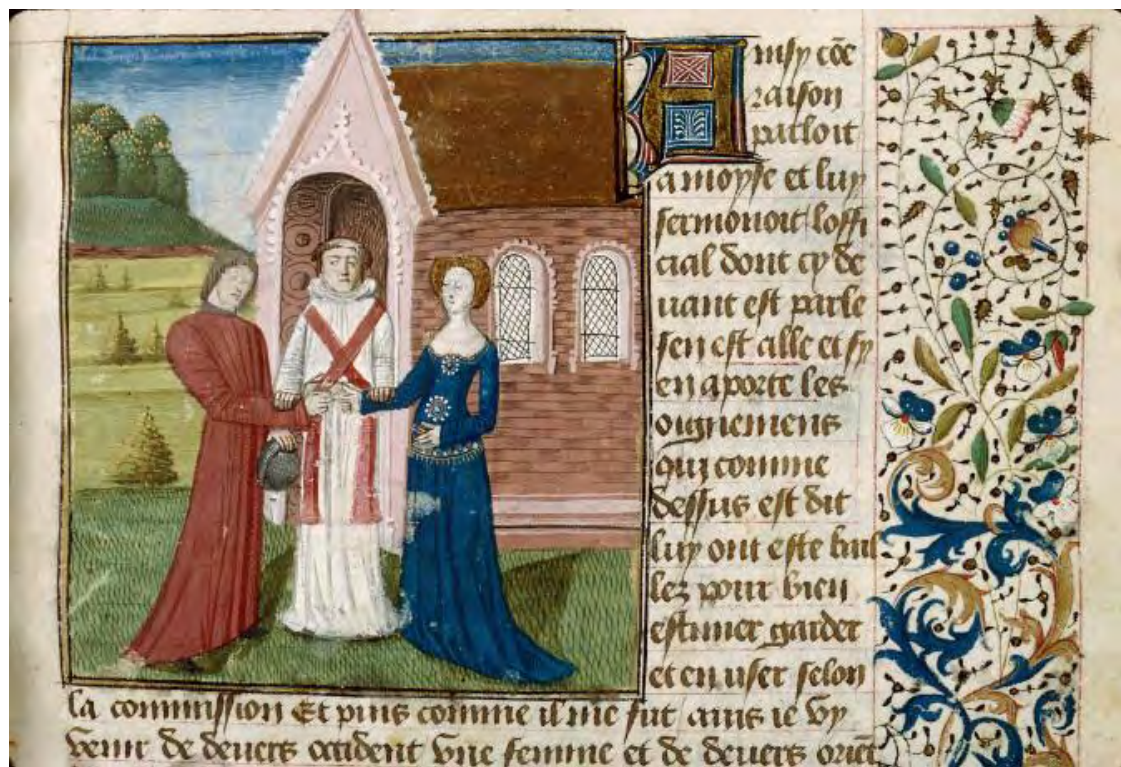 Ainsy cõe
raison
parloit
a moyse et luy
sermonoit loffi
cial dont cy de
uant est parle
sen est alle et sy
en aporte les
oignemens
qui comme
dessus est dit
luy ont este bail
lez pour bien
estimer garder
et en user selon
la commission Et puis comme il me fut auis ie vy
venir de deuers occident vne femme et de deuers oriẽt